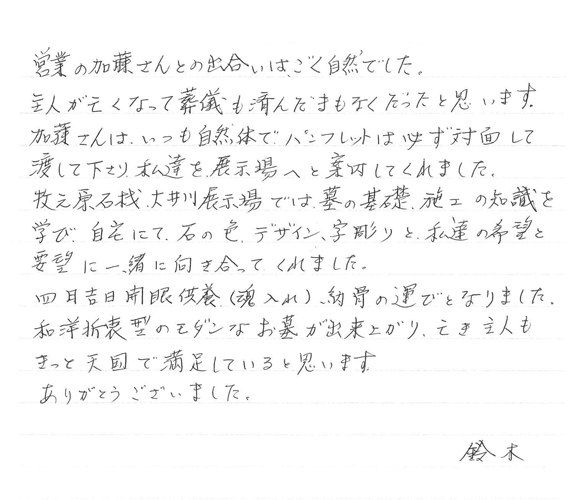 営業の加藤さんとの出合いは、ごく自然でした。
主人が亡くなって葬儀も済んだまもなくだったと思います。
加藤さんは、いつも自然体で、パンフレットは必ず対面して
渡して下さり、私達を展示場へと案内してくれました。
牧之原石材、大井川展示場では、墓の基礎、施工の知識を
学び、自宅にて、石の色、デザイン、字彫りと、私達の希望と
要望に一緒に向き合ってくれました。
四月吉日開眼供養(魂入れ)、納骨の運びとなりました。
和洋折衷型のモダンなお墓が出来上がり、亡き主人も
きっと天国で満足していると思います
ありがとうございました。
鈴木